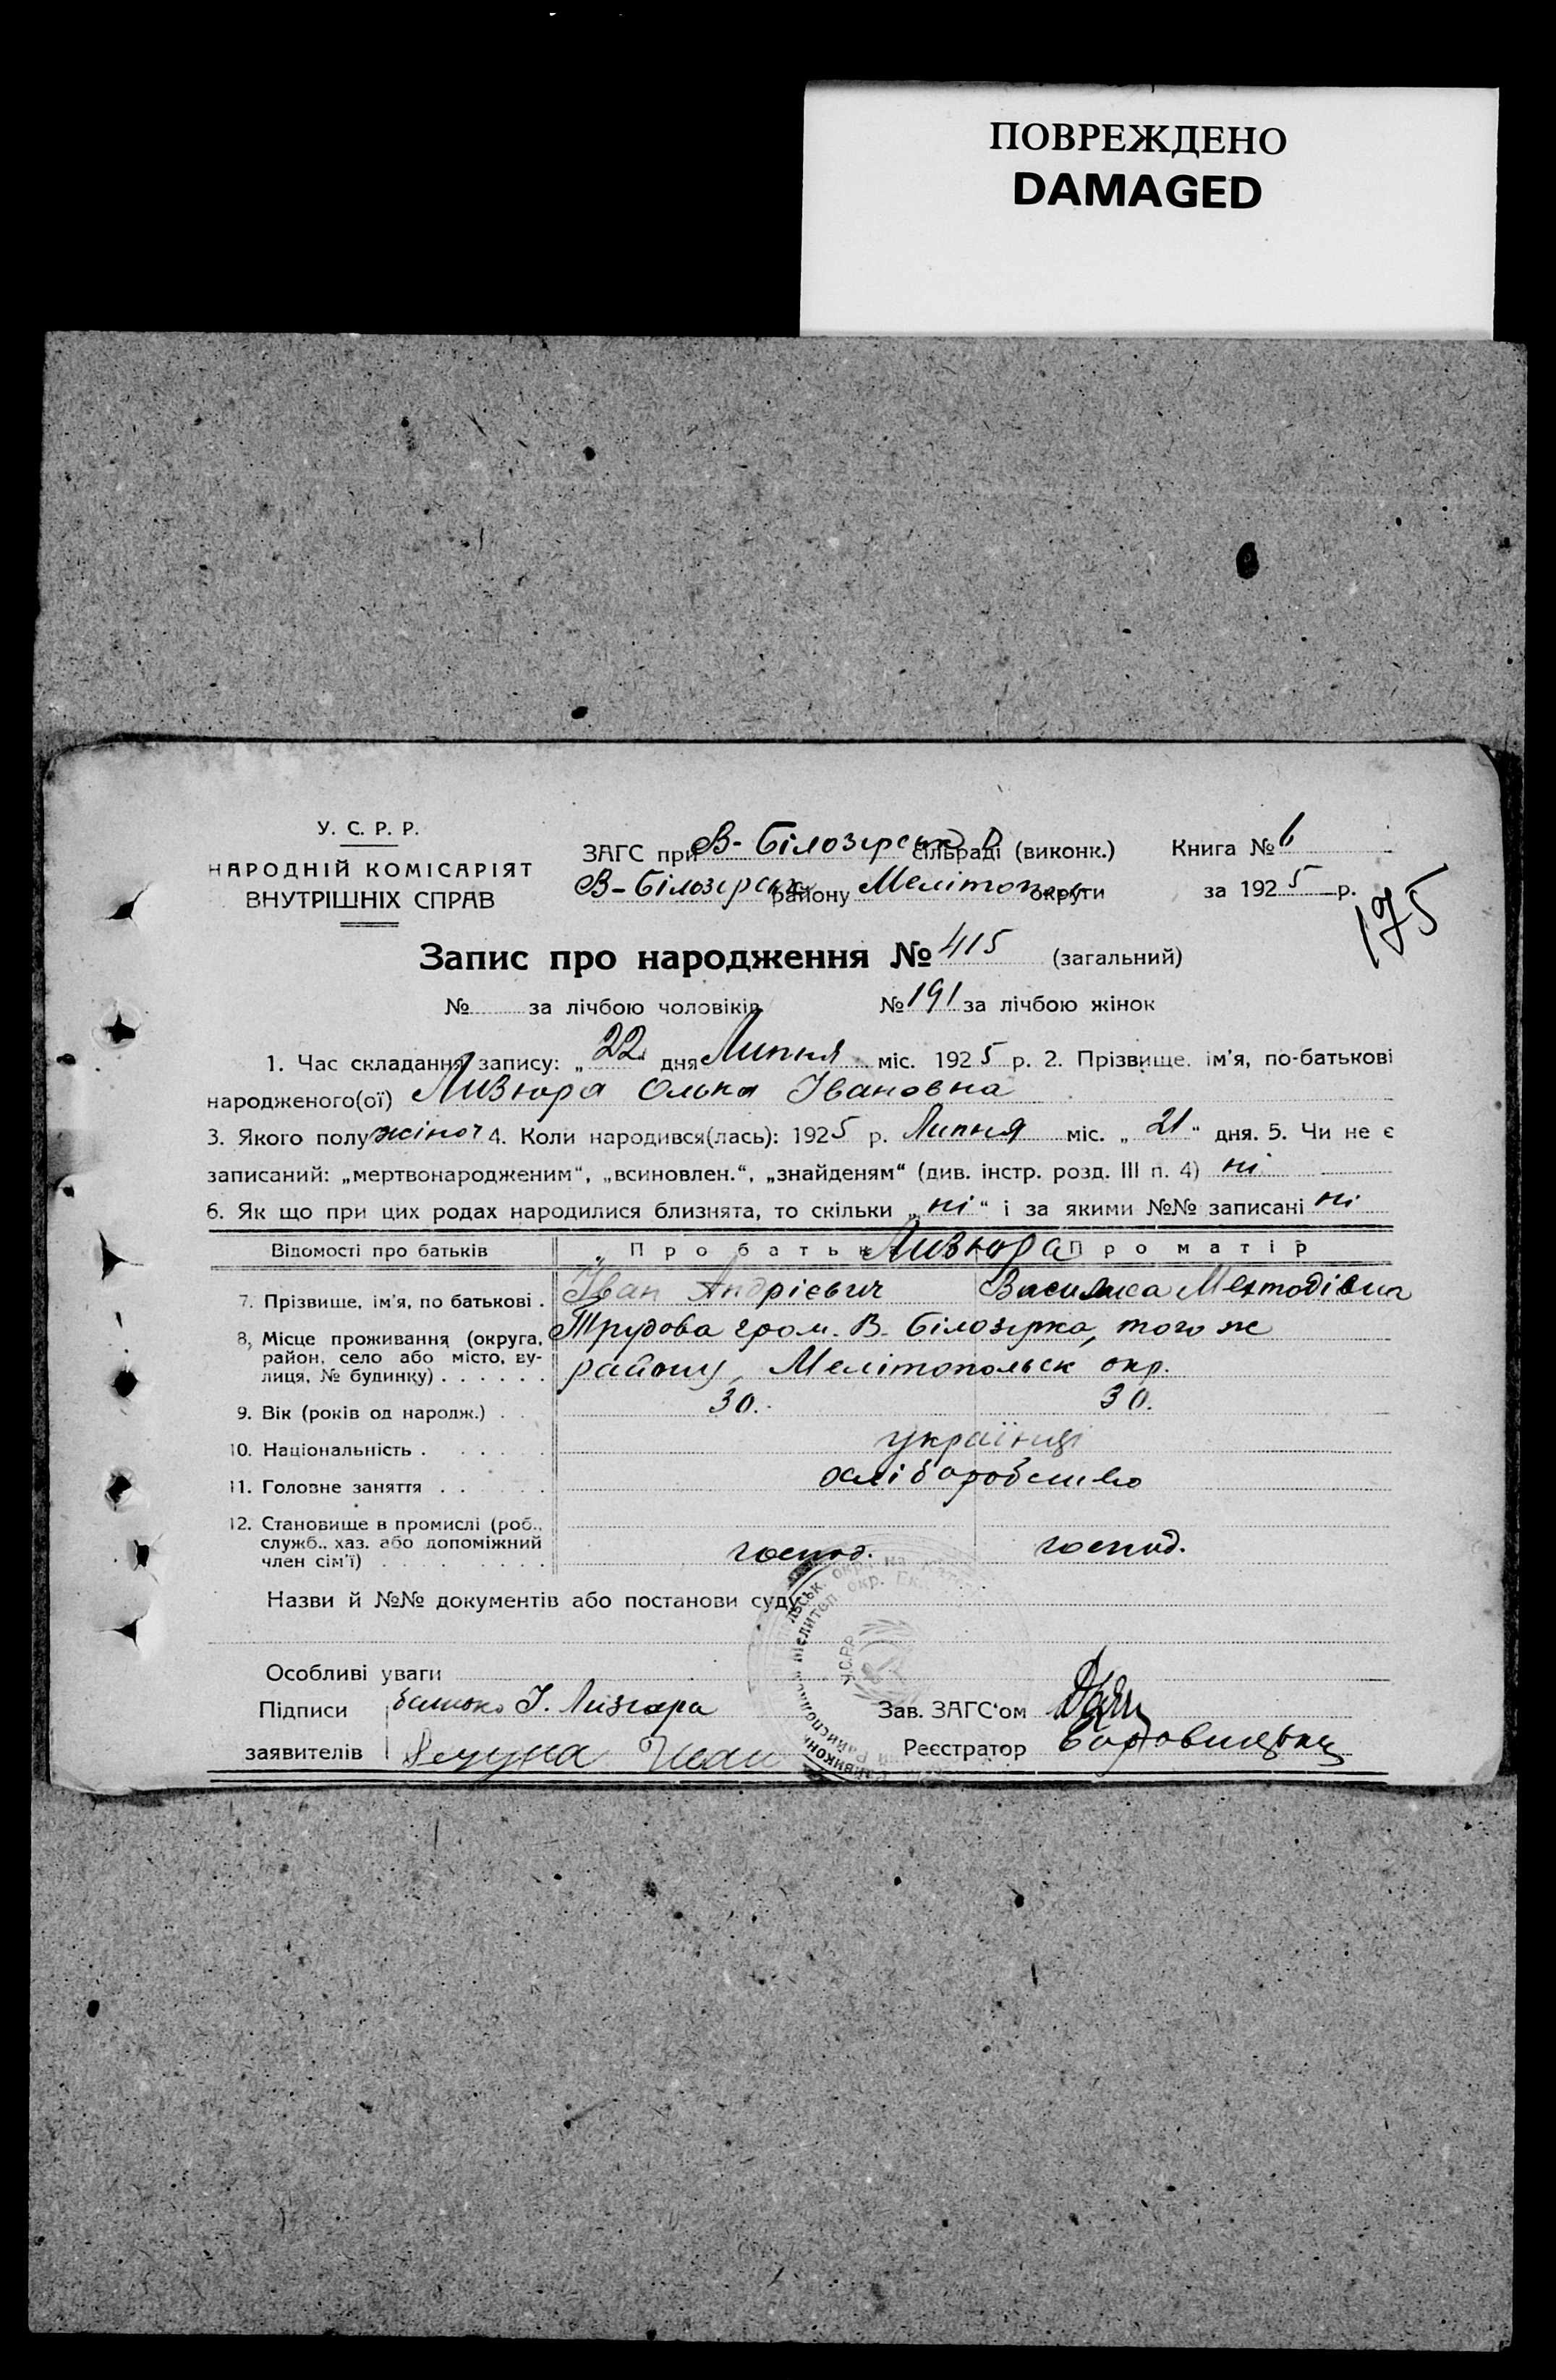 ПОВРЕЖДЕНО
DAMAGED
У. С. Р. Р.
НАРОДНІЙ КОМІСАРІЯТ
ВНУТРІШНІХ СПРАВ
ЗАГС при В-Білозірськ сільраді (виконк.) Книга № 6
В-Білозірськ району Мелітоп округи за 1925 р.
175
Запис про народження № 415 (загальний)
№ за лічбою чоловіків № 191 за лічбою жінок
1. Час складання запису: „22" дня Липня міс. 1925 р. 2. Прізвище. ім'я, по-батькові
народженого(ої) Лизюра Олька Івановна
3. Якого полу жіноч 4. Коли народився(лась): 1925 р. Липня міс. „21" дня. 5. Чи не є
записаний: „мертвонародженим", „всиновлен.", „знайденям" (див. інстр. розд. III п. 4) ні
6. Як що при цих родах народилися близнята, то скільки „ні" і за якими №№ записані ні
Відомості про батьків Про батьк Лизюра Про матір
7. Прізвище, ім'я, по батькові . Іван Андрієвич Василиса Мехтодівна
8, Місце проживання (округа, Трудова гром. В. Білозірка, того ж
район, село або місто, ву-
лиця, № будинку) . . . . . . району, Мелітопольск окр.
9. Вік (років од народж.) . . 30. 30.
10. Національність . . . . українці
11. Головне заняття . . . . хліборобство
12. Становище в промислі (роб.,
служб., хаз. або допоміжний
член сім'ї) . . . . . . господ. господ.
Назви й №№ документів або постанови суду
Особливі уваги
У.С.Р.Р.
Підписи батько І. Лизюра Зав. ЗАГС'ом
заявителів Реєстратор